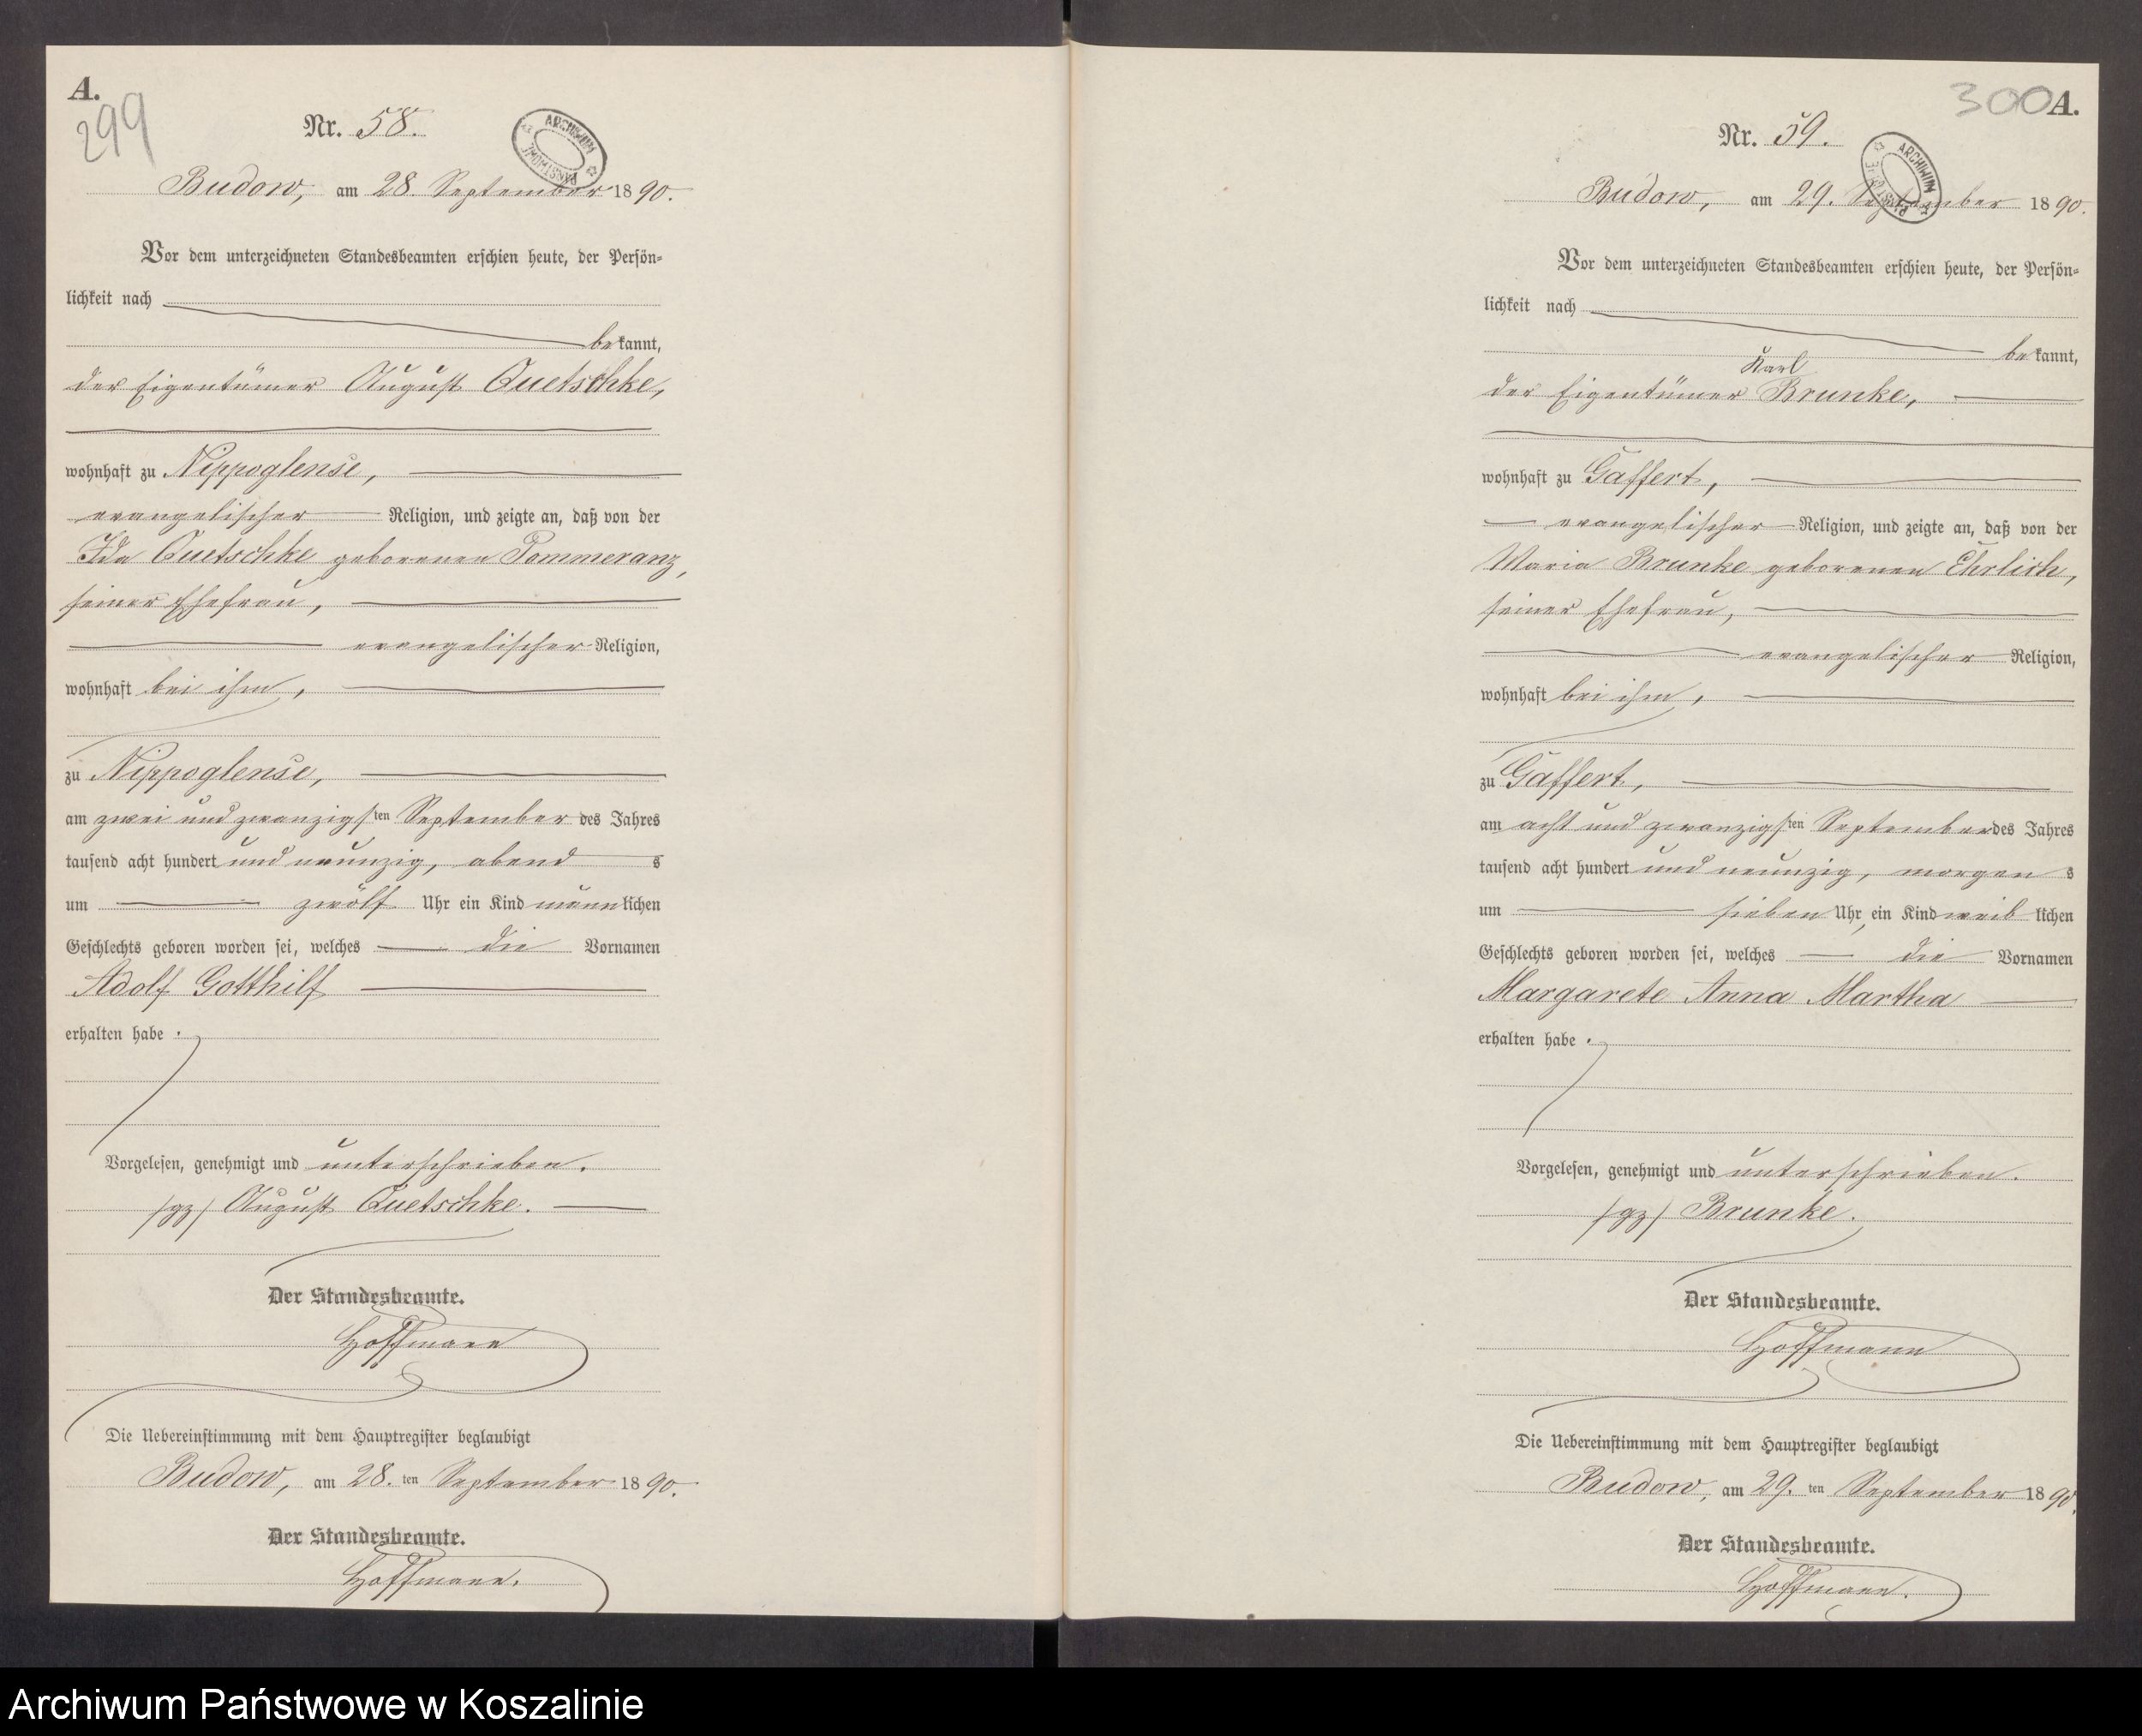 A.
299
Nr. 58.
ARCHIWUM PAŃSTWOWE
Budow, am 28. September 1890.
Vor dem unterzeichneten Standesbeamten erschien heute, der Persön-
lichkeit nach
bekannt,
der Eigentümer August Quetschke,
wohnhaft zu Nippoglense,
evangelischer Religion, und zeigte an, daß von der
Ida Quetschke geborenen Pommeranz,
seiner Ehefrau,
evangelischer Religion,
wohnhaft bei ihm,
zu Nippoglense,
am zwei und zwanzigsten September des Jahres
tausend acht hundert und neunzig, abend s
um zwölf Uhr ein Kind männlichen
Geschlechts geboren worden sei, welches die Vornamen
Adolf Gotthilf
erhalten habe.
Vorgelesen, genehmigt und unterschrieben.
/gz/ August Quetschke.
Der Standesbeamte.
Hoffmann
Die Uebereinstimmung mit dem Hauptregister beglaubigt
Budow, am 28. ten September 1890.
Der Standesbeamte.
Hoffmann.
300 A.
Nr. 59.
ARCHIWUM PAŃSTWOWE
Budow, am 29. September 1890.
Vor dem unterzeichneten Standesbeamten erschien heute, der Persön-
lichkeit nach
bekannt,
Karl
der Eigentümer Brunke,
wohnhaft zu Gaffert,
evangelischer Religion, und zeigte an, daß von der
Maria Brunke geborenen Ehrlich,
seiner Ehefrau,
evangelischer Religion,
wohnhaft bei ihm,
zu Gaffert,
am acht und zwanzigsten September des Jahres
tausend acht hundert und neunzig, morgen s
um sieben Uhr, ein Kind weiblichen
Geschlechts geboren worden sei, welches die Vornamen
Margarete Anna Martha
erhalten habe.
Vorgelesen, genehmigt und unterschrieben.
/gz/ Brunke.
Der Standesbeamte.
Hoffmann
Die Uebereinstimmung mit dem Hauptregister beglaubigt
Budow, am 29. ten September 1890.
Der Standesbeamte.
Hoffmann.
Archiwum Państwowe w Koszalinie